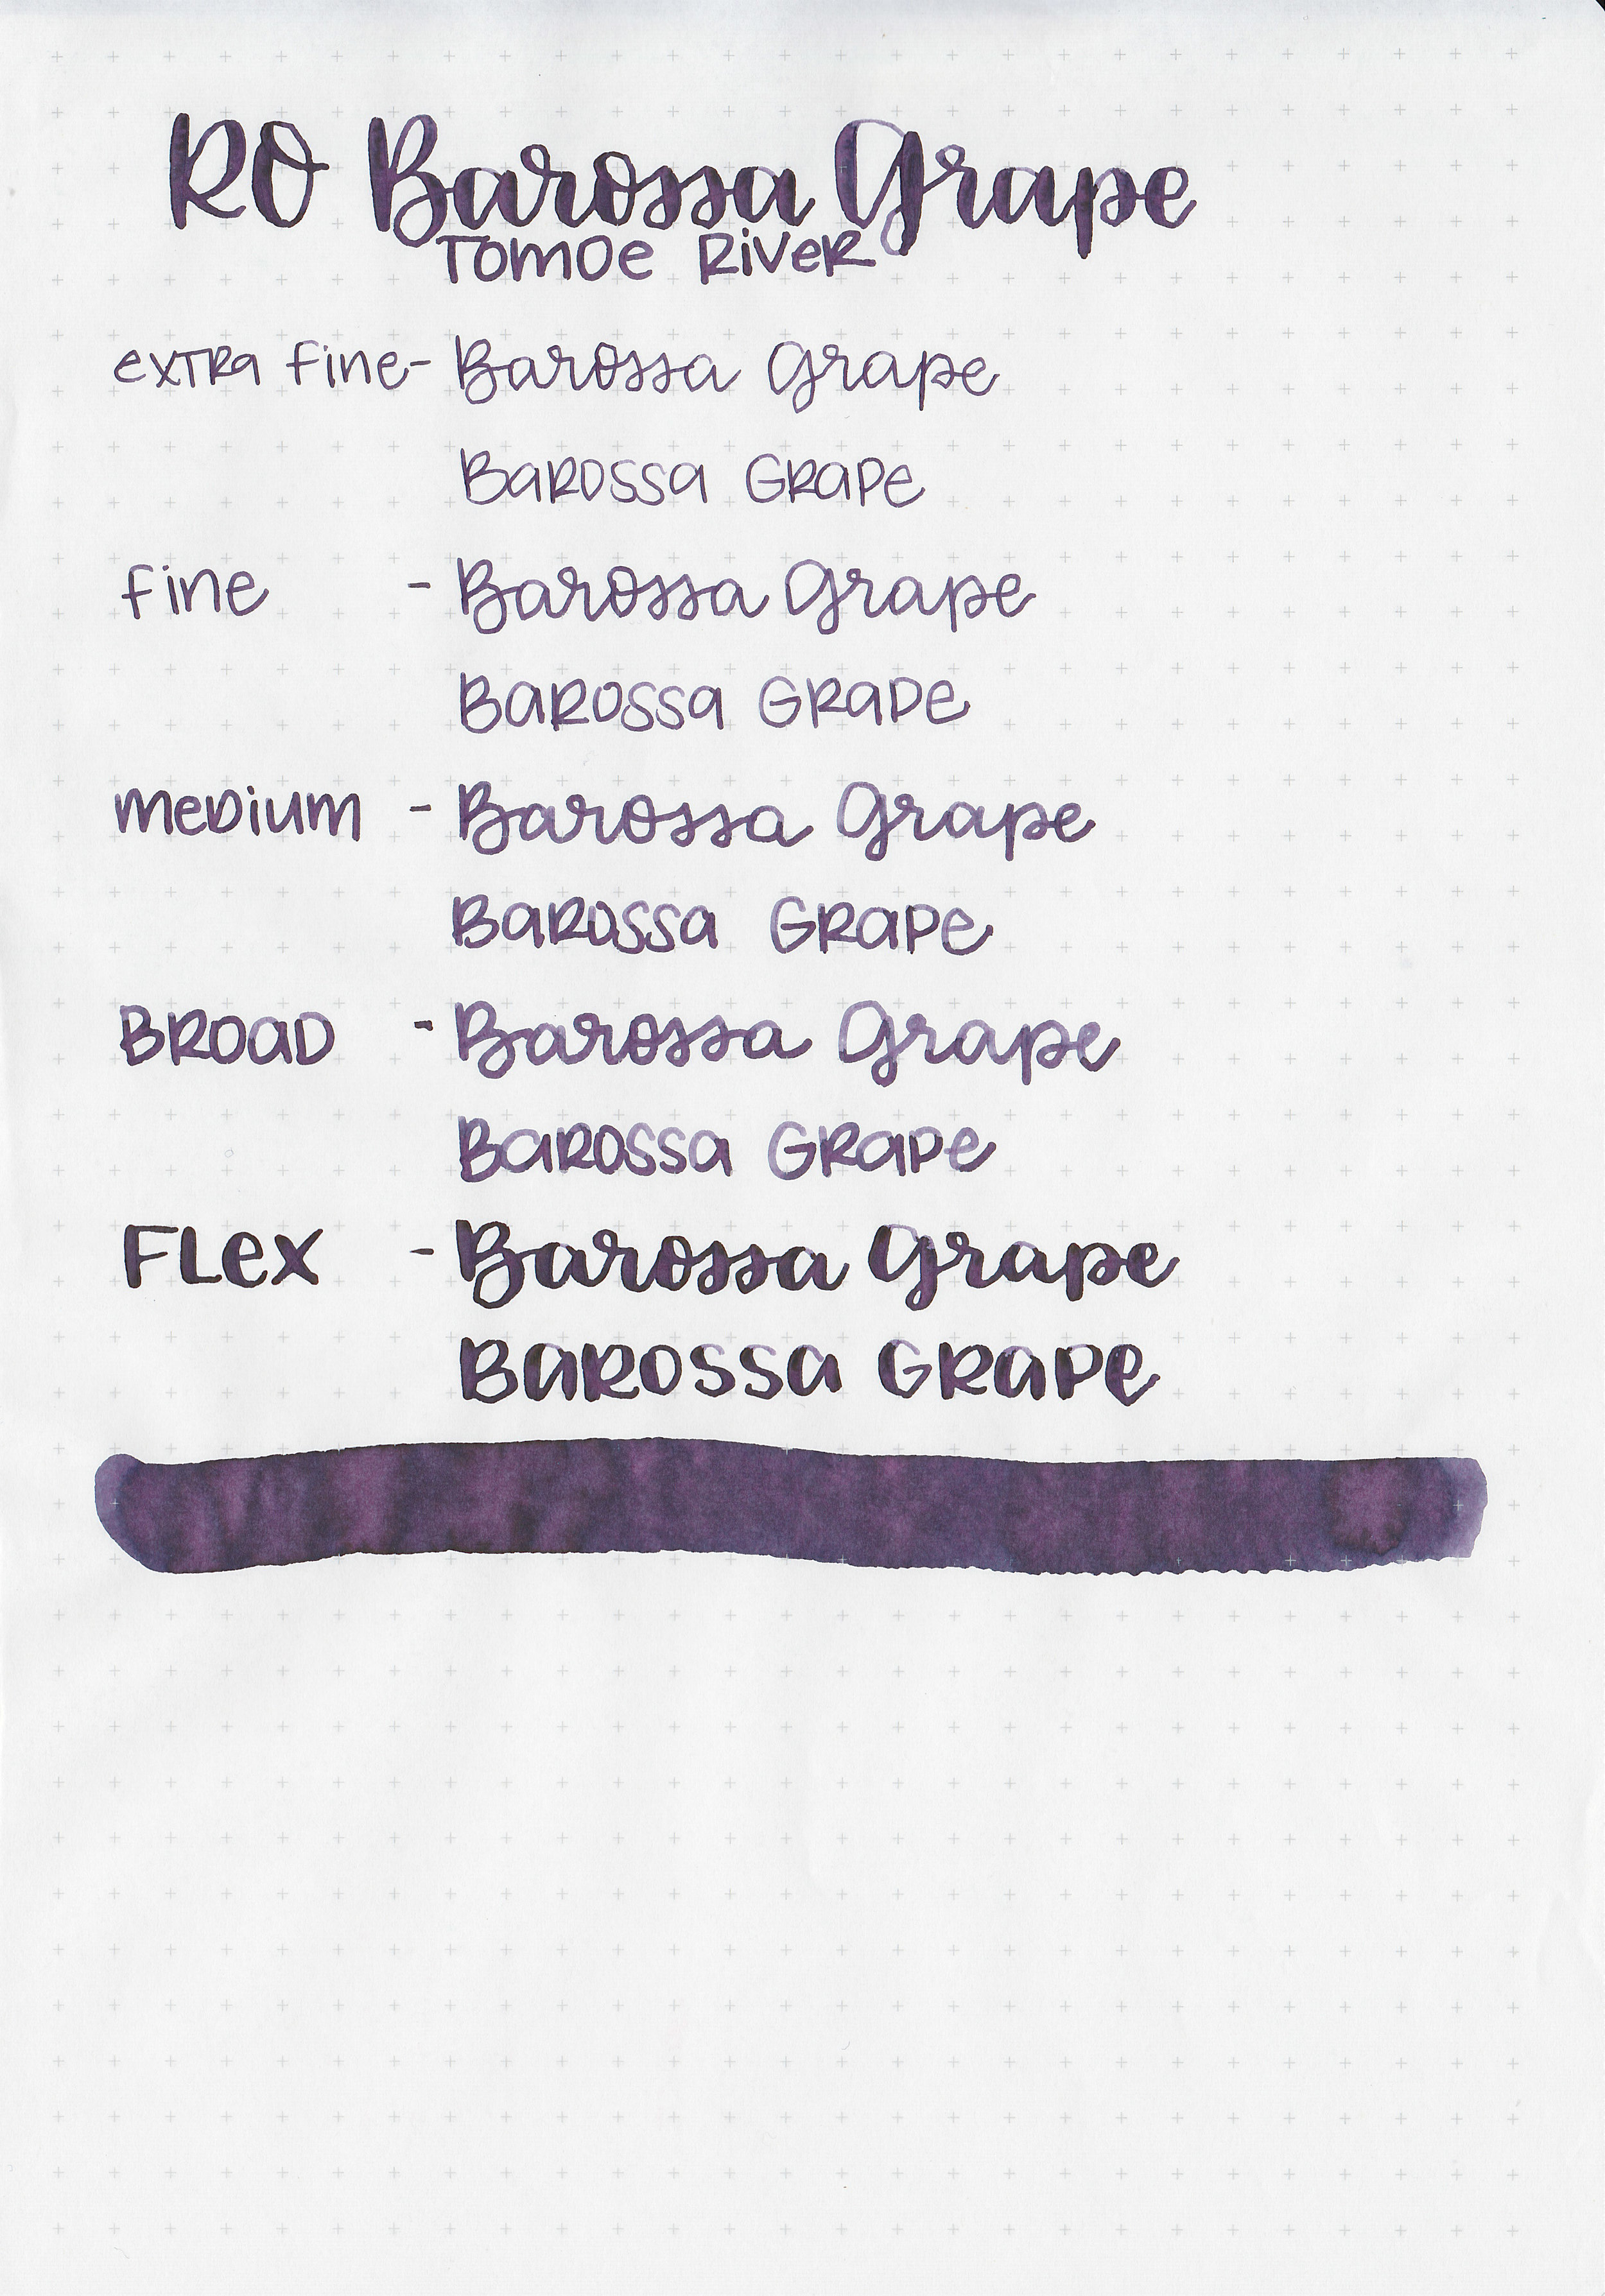 RO Barossa Grape
Tomoe River
extra fine - Barossa Grape
Barossa Grape
fine - Barossa Grape
Barossa Grape
Medium - Barossa Grape
Barossa Grape
Broad - Barossa Grape
Barossa Grape
Flex - Barossa Grape
Barossa Grape